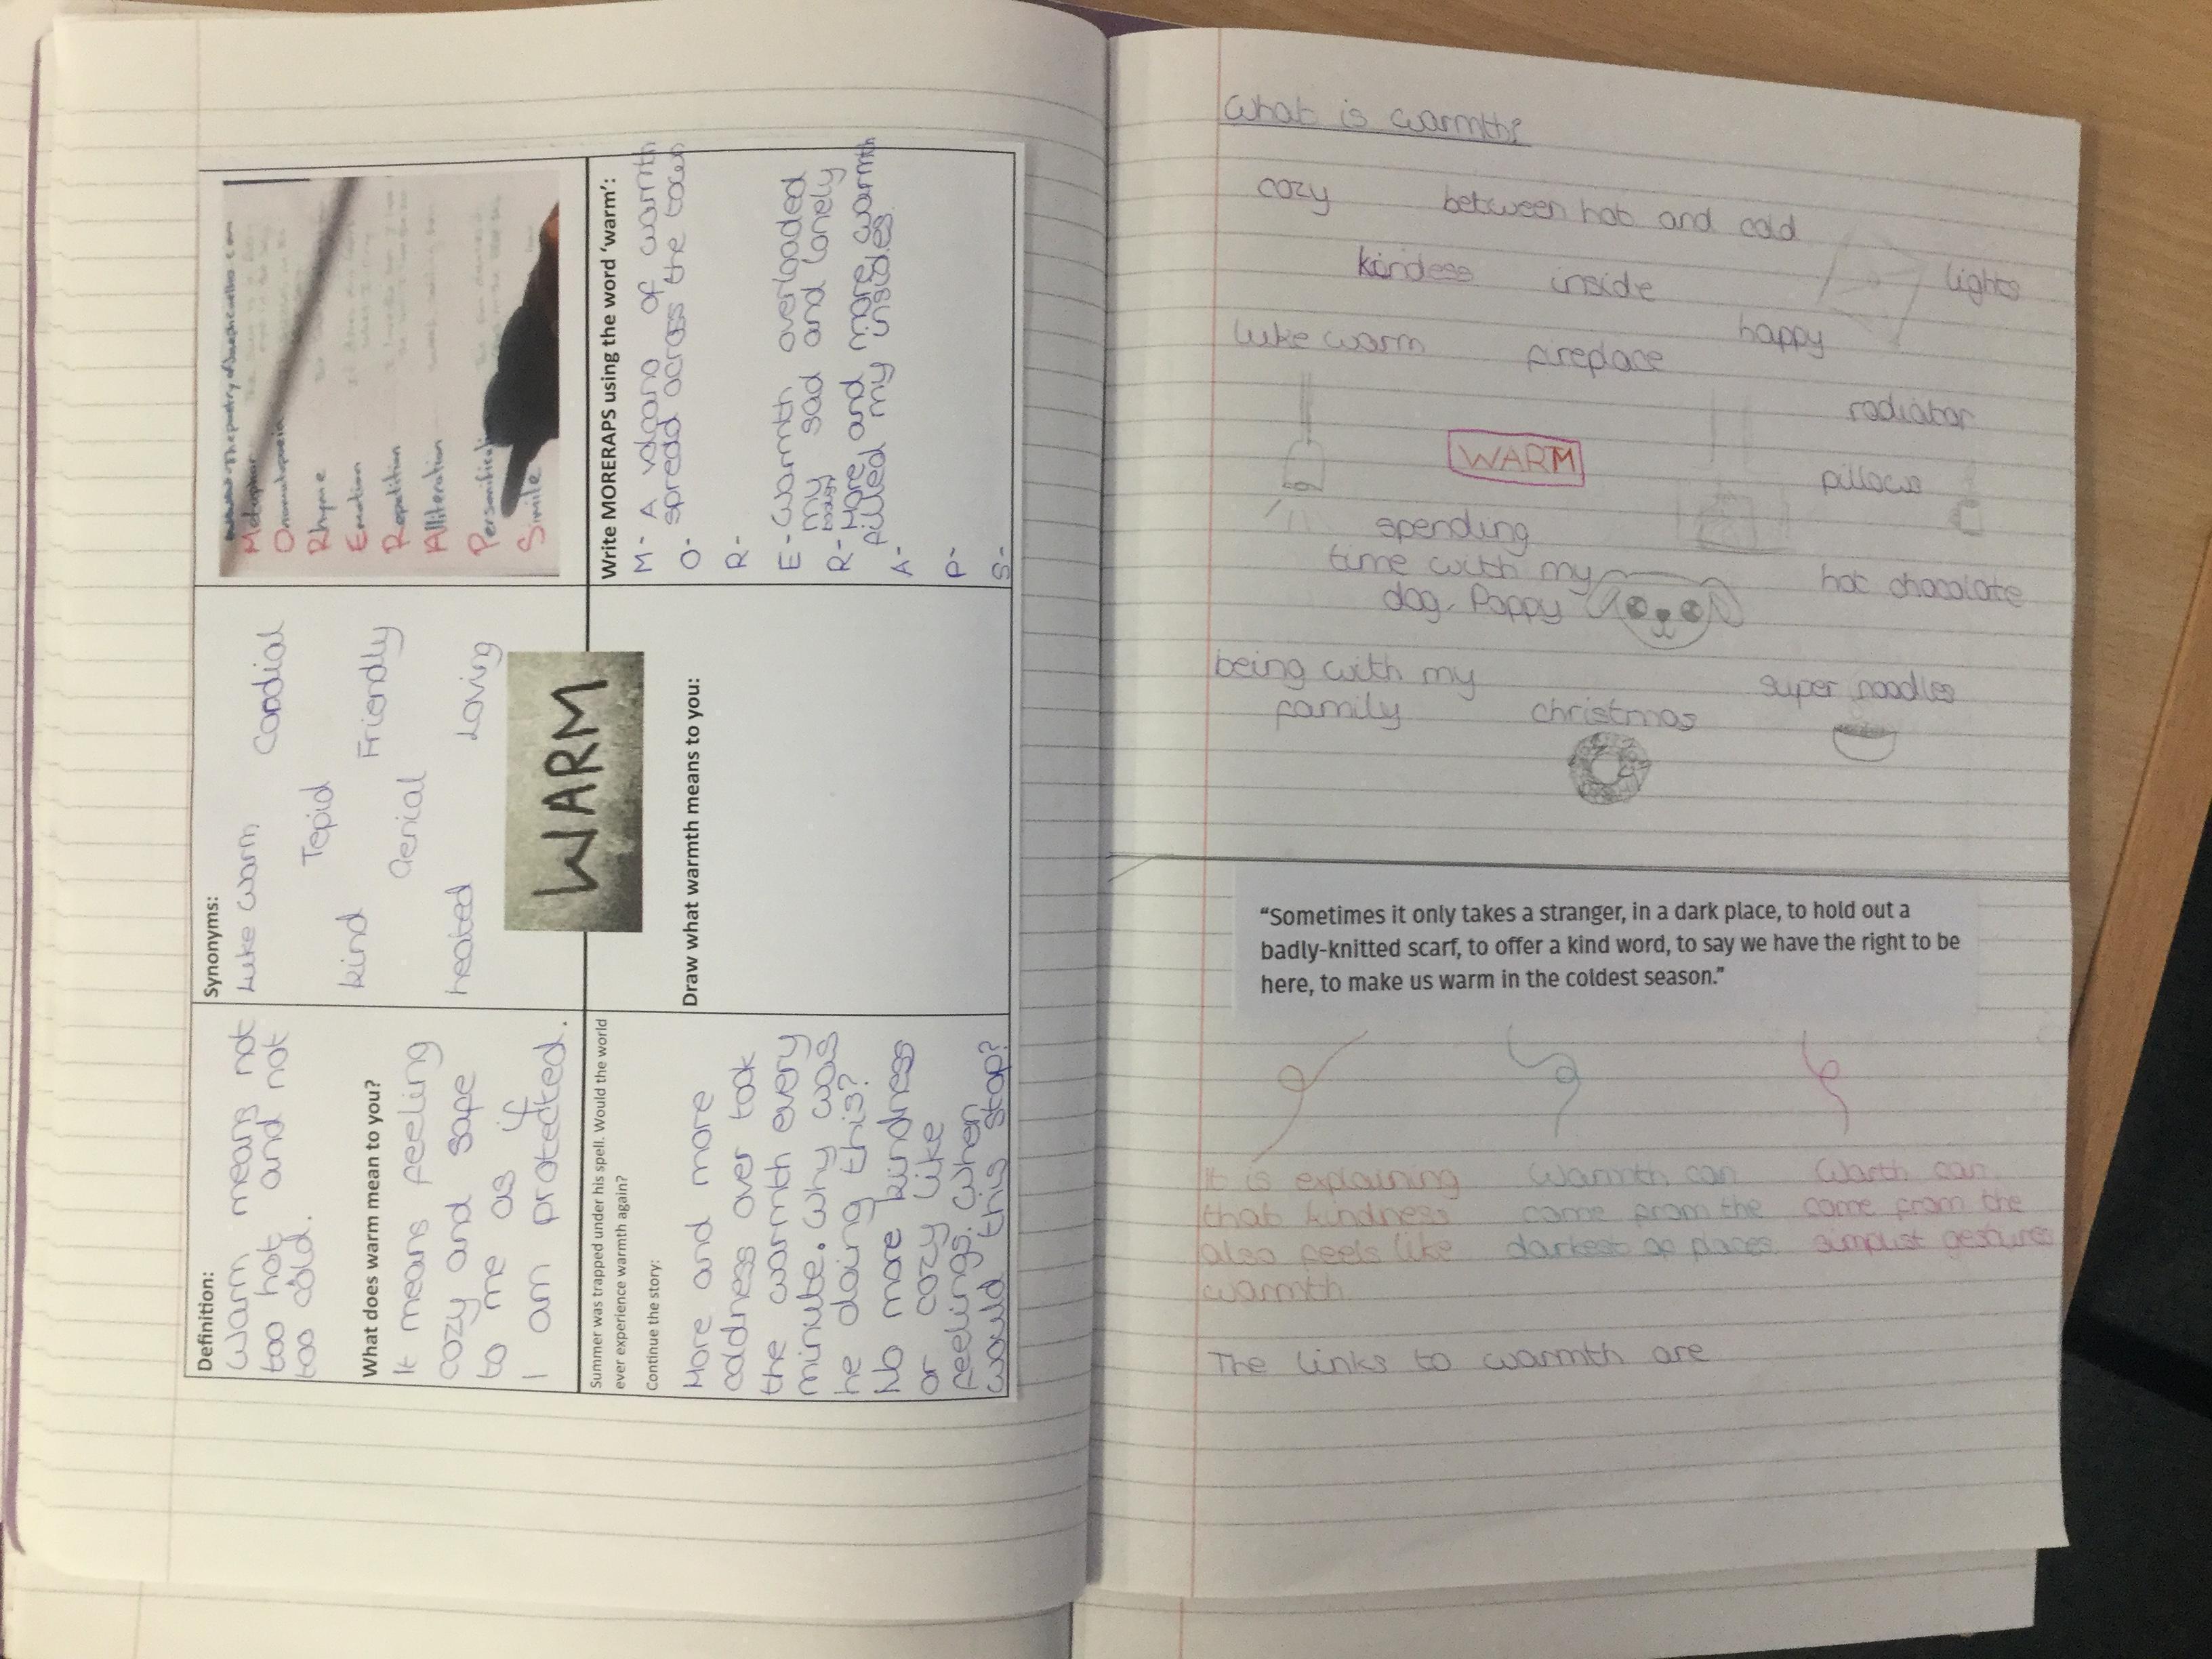 Definition:
Warm means not
too hot and not
too cold.
What does warm mean to you?
It means feeling
cozy and safe
to me as if
I am protected.
Synonyms:
Luke warm
Cordial
Tepid
kind
Friendly
Genial
heated
Loving
Metaphor
Onomatopoeia
Rhyme
Emotion
Repetition
Alliteration
Personificati
Simile
WARM
Summer was trapped under his spell. Would the world
ever experience warmth again?
Continue the story:
More and more
coldness over took
the warmth every
minute. Why was
he doing this?
No more kindness
or cozy like
feelings. When
would this stop?
Draw what warmth means to you:
Write MORERAPS using the word 'warm':
M- A volcano of warmth
spread across the town
O-
R-
E- Warmth overloaded
my sad and lonely
body
R- More and more warmth
filled my insides.
A-
P-
S-
What is warmth?
cozy
between hot and cold
kindess
inside
lights
luke warm
fireplace
happy
radiator
WARM
pillows
spending
time with my
dog, Poppy
hot chocolate
being with my
family
christmas
super noodles
“Sometimes it only takes a stranger, in a dark place, to hold out a
badly-knitted scarf, to offer a kind word, to say we have the right to be
here, to make us warm in the coldest season.”
It is explaining
that kindness
also feels like
warmth
Warmth can
come from the
darkest of places.
Warth can
come from the
simplist gestures
The links to warmth are